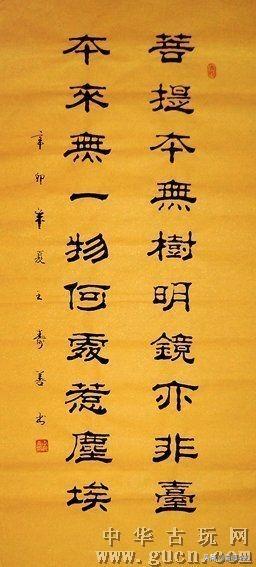 菩提本無樹明鏡亦非臺
本來無一物何處惹塵埃
辛卯年夏王寿善书
中华古玩网
www.gucn.com